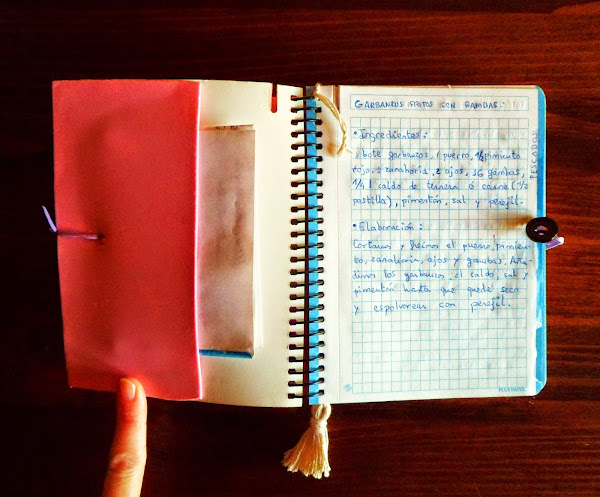 GARBANZOS FRITOS CON GAMBAS:
• Ingredientes:
1 bote garbanzos, 1 puerro, 1/2 pimiento
rojo, 1 zanahoria, 2 ajos, 16 gambas,
1/4 l caldo de ternera ó carne (1/2
pastilla), pimentón, sal y perejil.
• Elaboración:
Cortamos y freímos el puerro, pimien-
to, zanahoria, ajos y gambas. Aña-
dimos los garbanzos, el caldo, sal y
pimentón hasta que quede seco
y espolvorear con perejil.
PESCADOS